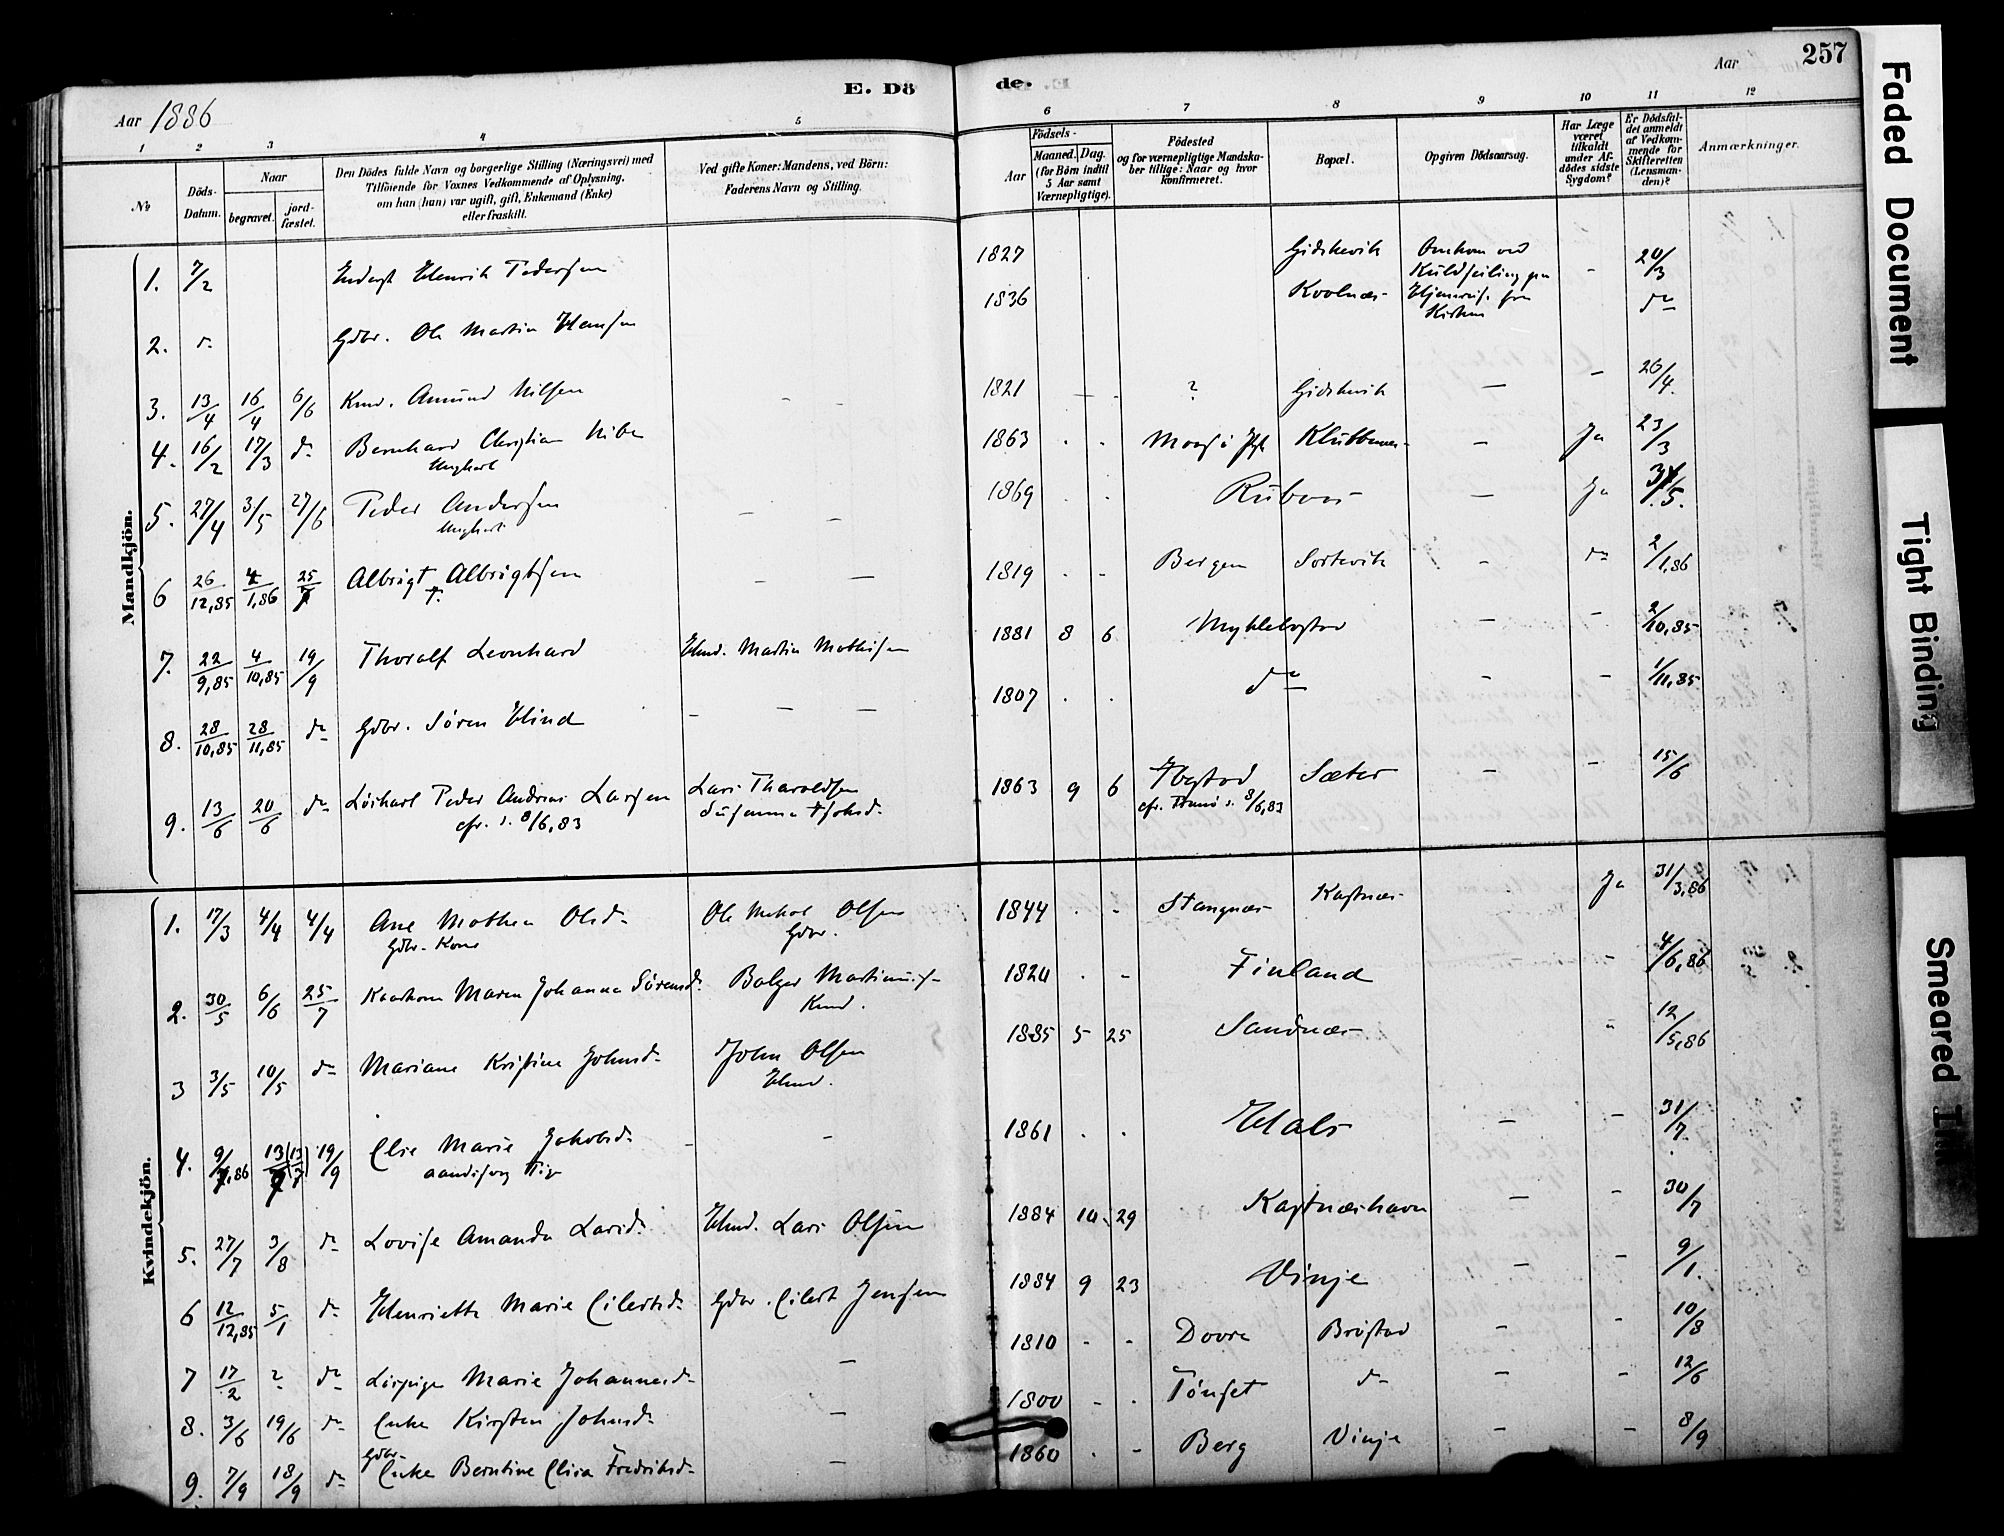 257
E. Dö
de.
Aar 1886
Aar
1 2 3 4 5 6 7 8 9 10 11 12
№
Döds-
Datum.
Naar
begravet.
jord-
fæstet.
Den Dödes fulde Navn og borgerlige Stilling (Næringsvei) med
Tilföiende for Voxnes Vedkommende af Oplysning,
om han (hun) var ugift, gift, Enkemand (Enke)
eller fraskilt.
Ved gifte Koner: Mandens, ved Börn:
Faderens Navn og Stilling.
Födsels-
Aar
Maaned. Dag.
(for Börn indtil
5 Aar samt
Værnepligtige).
Födested
og for værnepligtige Mandska-
ber tillige: Naar og hvor
konfirmeret.
Bopæl.
Opgiven Dödsaarsag.
Har Læge
været
tilkaldt
under Af-
dödes sidste
Sygdom?
Er Dödsfal-
det anmeldt
af Vedkom-
mende for
Skifteretten
(Lensman-
den)?
Anmærkninger.
Mandkjön.
1. 7/2 Henrik Pedersen 1827 Gidskevik Omkom ved - 20/3
Kuldseiling paa
2. d. Gdbr. Ole Martin Hansen 1836 Kvolnæs Hjemreis. fra do
Kirken
3. 13/4 16/4 6/6 Kmd. Amund Nilsen - - 1821 - - ? Gidskevik - - 26/4.
4. 16/2 17/3 do Bernhard Christian 1863 . . Klubbenes - Ja 23/3
Ungkarl
5. 27/4 3/5 27/6 Peder Andersen - - 1869 . . Rubbaas - Ja 31/5.
Ungkarl
6 26/12,85 4/1,86 25/7 Albrigt Albrigtsen - - 1819 . - Bergen Sortevik - do 2/1,86
7. 22/9,85 4/10,85 19/9 Thoralf Leonhard Hmd. Martin Mathisen 1881 8 6 Myklebostad - - 2/10,85
8. 28/10,85 28/11,85 do Gdbr. Søren Hind - - - 1807 . . do - - 1/11,85
9. 13/6 20/6 do Løskarl Peder Andreas Larsen Lars Tharaldsen 1863 9 6 Ibestad Sæter - - 15/6
cfr. s. 8/6,83 Susanna Johsd. cfr. Tranö s. 8/6,83
Kvindekjön.
1. 17/3 4/4 4/4 Ane Mathea Olsd. Ole Mikal Olsen 1844 . - Stangnæs Kastnæs . Ja 31/3,86
Gdbr. Kone Gdbr.
2. 30/5 6/6 25/7 Maren Johanna Sørensd. Balzer Martinus- 1820 . - Finland - 4/6,86
Kmd.
3 3/5 10/5 do Mariane Kristine Johnsd. John Olsen 1885 5 25 Sandnæs - 12/5,86
Hmd.
4. 9/7,86 13/7 (13/7) 19/9 Else Marie Jakobsd. - - 1861 . . Hals - - 31/7.
aandssvag Pige
5. 27/7 3/8 do Lovise Amanda Larsd. Hmd. Lars Olsen 1884 10 29 Kastnæshavn - - 30/7
6 12/12,85 5/1 do Henriette Marie Eilertsd. Gdbr. Eilert Jensen 1884 9 23 Vinje - - 9/1.
7 17/2 ? do Løspige Marie Johannesd. - 1810 - - Dovre Brøstad - - 10/8
8. 3/6 19/6 do Enke Kirsten Johnsd. - 1800 - . Tønset do - - 12/6
9. 7/9 18/9 do Gdbr. Enke Berntine Elisa Fredriksd. - 1860 . - Berg Vinje - - 8/9
Faded Document
Tight Binding
Smeared Ink